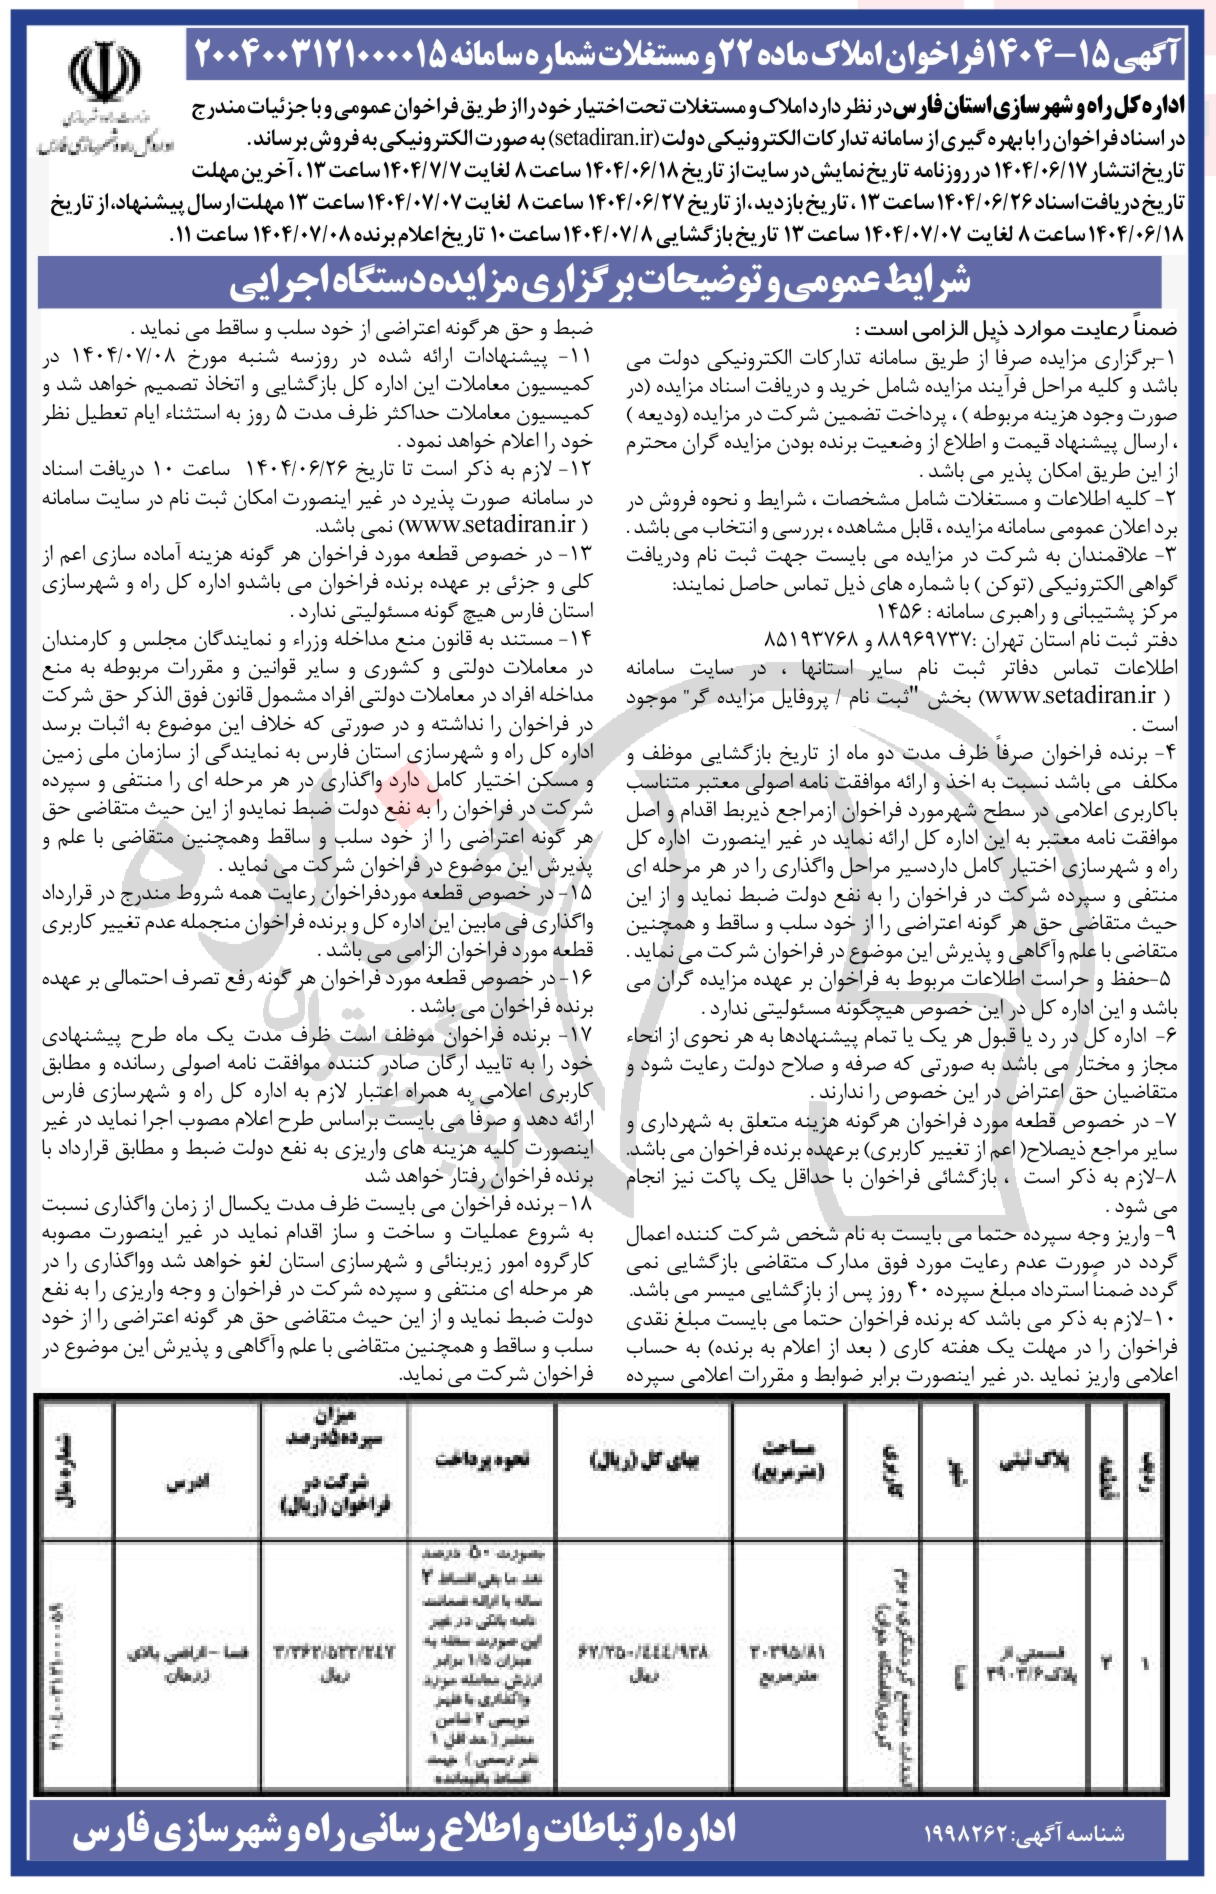 آگهی ۱۵-۱۴۰۴فراخوان املاک ماده ۲۲و مستغلات شماره سامانه ۲۰۰۴۰۰۳۱۲۱۰۰۰۰۱۵
وزارت راه و شهرسازی
اداره کل راه و شهرسازی فارس
اداره کل راه و شهرسازی استان فارس در نظر دارد املاک و مستغلات تحت اختیار خود را از طریق فراخوان عمومی و با جزئیات مندرج
در اسناد فراخوان را با بهره گیری از سامانه تدارکات الکترونیکی دولت (setadiran.ir) به صورت الکترونیکی به فروش برساند.
تاریخ انتشار ۱۴۰۴/۰۶/۱۷ در روزنامه تاریخ نمایش در سایت از تاریخ ۱۴۰۴/۰۶/۱۸ ساعت ۸ لغایت ۱۴۰۴/۷/۷ ساعت ۱۳ ، آخرین مهلت
تاریخ دریافت اسناد ۱۴۰۴/۰۶/۲۶ ساعت ۱۳ ، تاریخ بازدید، از تاریخ ۱۴۰۴/۰۶/۲۷ ساعت ۸ لغایت ۱۴۰۴/۰۷/۰۷ ساعت ۱۳ مهلت ارسال پیشنهاد، از تاریخ
۱۴۰۴/۰۶/۱۸ ساعت ۸ لغایت ۱۴۰۴/۰۷/۰۷ ساعت ۱۳ تاریخ بازگشایی ۱۴۰۴/۰۷/۸ ساعت ۱۰ تاریخ اعلام برنده ۱۴۰۴/۰۷/۰۸ ساعت ۱۱.
شرایط عمومی و توضیحات برگزاری مزایده دستگاه اجرایی
ضمناً رعایت موارد ذیل الزامی است :
۱-برگزاری مزایده صرفاً از طریق سامانه تدارکات الکترونیکی دولت می
باشد و کلیه مراحل فرآیند مزایده شامل خرید و دریافت اسناد مزایده (در
صورت وجود هزینه مربوطه ) ، پرداخت تضمین شرکت در مزایده (ودیعه )
، ارسال پیشنهاد قیمت و اطلاع از وضعیت برنده بودن مزایده گران محترم
از این طریق امکان پذیر می باشد .
۲- کلیه اطلاعات و مستغلات شامل مشخصات ، شرایط و نحوه فروش در
برد اعلان عمومی سامانه مزایده ، قابل مشاهده ، بررسی و انتخاب می باشد .
۳- علاقمندان به شرکت در مزایده می بایست جهت ثبت نام ودریافت
گواهی الکترونیکی (توکن ) با شماره های ذیل تماس حاصل نمایند:
مرکز پشتیبانی و راهبری سامانه : ۱۴۵۶
دفتر ثبت نام استان تهران :۸۸۹۶۹۷۳۷ و ۸۵۱۹۳۷۶۸
اطلاعات تماس دفاتر ثبت نام سایر استانها ، در سایت سامانه
( www.setadiran.ir) بخش "ثبت نام / پروفایل مزایده گر" موجود
است .
۴- برنده فراخوان صرفاً ظرف مدت دو ماه از تاریخ بازگشایی موظف و
مکلف می باشد نسبت به اخذ و ارائه موافقت نامه اصولی معتبر متناسب
باکاربری اعلامی در سطح شهرمورد فراخوان ازمراجع ذیربط اقدام و اصل
موافقت نامه معتبر به این اداره کل ارائه نماید در غیر اینصورت اداره کل
راه و شهرسازی اختیار کامل داردسیر مراحل واگذاری را در هر مرحله ای
منتفی و سپرده شرکت در فراخوان را به نفع دولت ضبط نماید و از این
حیث متقاضی حق هر گونه اعتراضی را از خود سلب و ساقط و همچنین
متقاضی با علم وآگاهی و پذیرش این موضوع در فراخوان شرکت می نماید .
۵-حفظ و حراست اطلاعات مربوط به فراخوان بر عهده مزایده گران می
باشد و این اداره کل در این خصوص هیچگونه مسئولیتی ندارد .
۶- اداره کل در رد یا قبول هر یک یا تمام پیشنهادها به هر نحوی از انحاء
مجاز و مختار می باشد به صورتی که صرفه و صلاح دولت رعایت شود و
متقاضیان حق اعتراض در این خصوص را ندارند .
۷- در خصوص قطعه مورد فراخوان هرگونه هزینه متعلق به شهرداری و
سایر مراجع ذیصلاح( اعم از تغییر کاربری) برعهده برنده فراخوان می باشد.
۸-لازم به ذکر است ، بازگشائی فراخوان با حداقل یک پاکت نیز انجام
می شود .
۹- واریز وجه سپرده حتما می بایست به نام شخص شرکت کننده اعمال
گردد در صورت عدم رعایت مورد فوق مدارک متقاضی بازگشایی نمی
گردد ضمناً استرداد مبلغ سپرده ۴۰ روز پس از بازگشایی میسر می باشد.
۱۰-لازم به ذکر می باشد که برنده فراخوان حتماً می بایست مبلغ نقدی
فراخوان را در مهلت یک هفته کاری ( بعد از اعلام به برنده) به حساب
اعلامی واریز نماید .در غیر اینصورت برابر ضوابط و مقررات اعلامی سپرده
ضبط و حق هرگونه اعتراضی از خود سلب و ساقط می نماید .
۱۱- پیشنهادات ارائه شده در روزسه شنبه مورخ ۱۴۰۴/۰۷/۰۸ در
کمیسیون معاملات این اداره کل بازگشایی و اتخاذ تصمیم خواهد شد و
کمیسیون معاملات حداکثر ظرف مدت ۵ روز به استثناء ایام تعطیل نظر
خود را اعلام خواهد نمود .
۱۲- لازم به ذکر است تا تاریخ ۱۴۰۴/۰۶/۲۶ ساعت ۱۰ دریافت اسناد
در سامانه صورت پذیرد در غیر اینصورت امکان ثبت نام در سایت سامانه
( www.setadiran.ir) نمی باشد.
۱۳- در خصوص قطعه مورد فراخوان هر گونه هزینه آماده سازی اعم از
کلی و جزئی بر عهده برنده فراخوان می باشدو اداره کل راه و شهرسازی
استان فارس هیچ گونه مسئولیتی ندارد .
۱۴- مستند به قانون منع مداخله وزراء و نمایندگان مجلس و کارمندان
در معاملات دولتی و کشوری و سایر قوانین و مقررات مربوطه به منع
مداخله افراد در معاملات دولتی افراد مشمول قانون فوق الذکر حق شرکت
در فراخوان را نداشته و در صورتی که خلاف این موضوع به اثبات برسد
اداره کل راه و شهرسازی استان فارس به نمایندگی از سازمان ملی زمین
و مسکن اختیار کامل دارد واگذاری در هر مرحله ای را منتفی و سپرده
شرکت در فراخوان را به نفع دولت ضبط نمایدو از این حیث متقاضی حق
هر گونه اعتراضی را از خود سلب و ساقط وهمچنین متقاضی با علم و
پذیرش این موضوع در فراخوان شرکت می نماید .
۱۵- در خصوص قطعه موردفراخوان رعایت همه شروط مندرج در قرارداد
واگذاری فی مابین این اداره کل و برنده فراخوان منجمله عدم تغییر کاربری
قطعه مورد فراخوان الزامی می باشد .
۱۶- در خصوص قطعه مورد فراخوان هر گونه رفع تصرف احتمالی بر عهده
برنده فراخوان می باشد .
۱۷- برنده فراخوان موظف است ظرف مدت یک ماه طرح پیشنهادی
خود را به تایید ارگان صادر کننده موافقت نامه اصولی رسانده و مطابق
کاربری اعلامی به همراه اعتبار لازم به اداره کل راه و شهرسازی فارس
ارائه دهد و صرفاً می بایست براساس طرح اعلام مصوب اجرا نماید در غیر
اینصورت کلیه هزینه های واریزی به نفع دولت ضبط و مطابق قرارداد با
برنده فراخوان رفتار خواهد شد
۱۸- برنده فراخوان می بایست ظرف مدت یکسال از زمان واگذاری نسبت
به شروع عملیات و ساخت و ساز اقدام نماید در غیر اینصورت مصوبه
کارگروه امور زیربنائی و شهرسازی استان لغو خواهد شد وواگذاری را در
هر مرحله ای منتفی و سپرده شرکت در فراخوان و وجه واریزی را به نفع
دولت ضبط نماید و از این حیث متقاضی حق هر گونه اعتراضی را از خود
سلب و ساقط و همچنین متقاضی با علم وآگاهی و پذیرش این موضوع در
فراخوان شرکت می نماید.
ردیف
قطعه
پلاک ثبتی
شهر
کاربری
مساحت
(مترمربع)
بهای کل (ریال)
نحوه پرداخت
میزان
سپرده۵درصد
شرکت در
فراخوان (ریال)
آدرس
شماره مال
۱
۲
قسمتی از
پلاک۳۹۰۳/۶
فسا
احداث مجتمع گردشگری و بوم
گردی(اقامتگاه جوان)
۲۰۳۹۵/۸۱
مترمربع
۶۷/۲۵۰/۴۴۴/۹۳۸
ریال
بصورت ۵۰ درصد
نقد ما بقی اقساط ۲
ساله با ارائه ضمانت
نامه بانکی در غیر
این صورت سفته به
میزان ۱/۵ برابر
ارزش معامله مورد
واگذاری با ظهر
نویسی ۲ ضامن
معتبر ( حداقل ۱
نفر رسمی ) جهت
اقساط باقیمانده
۳/۳۶۲/۵۲۲/۲۴۷
ریال
فسا -اراضی بالای
زرمان
۲۱۰۴۰۰۳۱۲۱۰۰۰۰۵۹
شناسه آگهی: ۱۹۹۸۲۶۲
اداره ارتباطات و اطلاع رسانی راه و شهرسازی فارس
هزاره